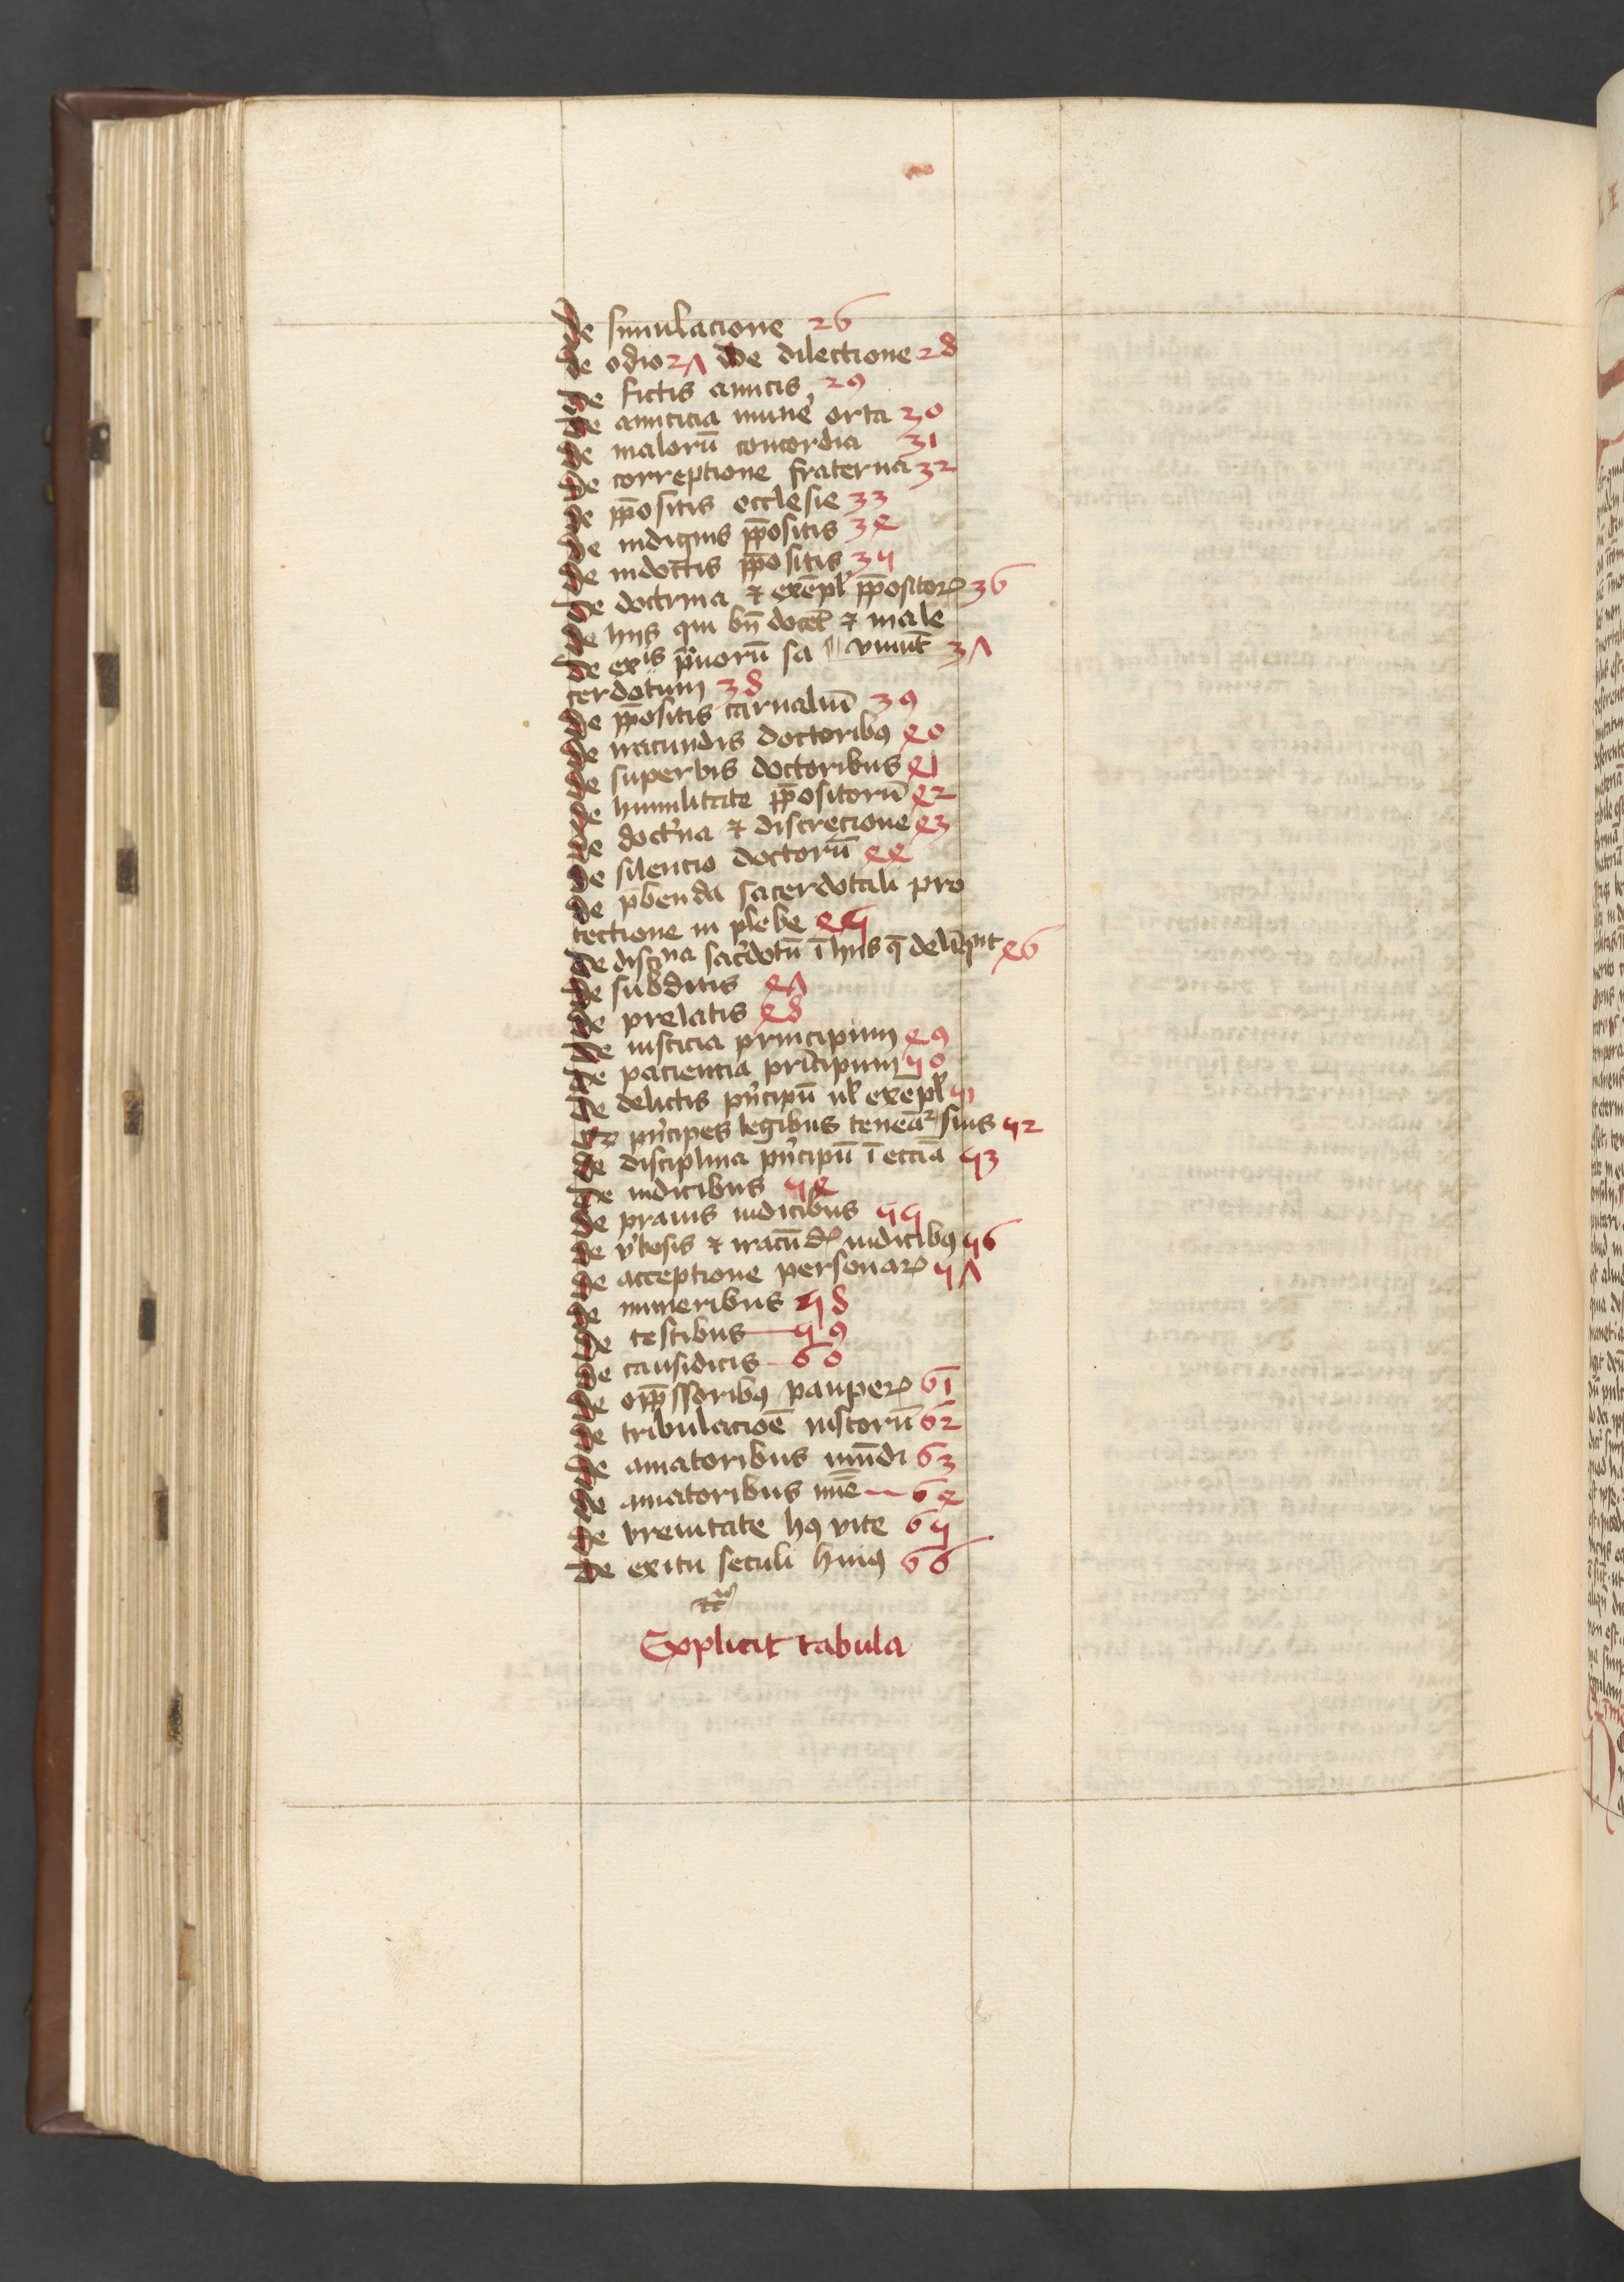 De simulacione 26
De odio 27 De dilectione 28
De fictis amicis 29
De amicicia mune͛ orta 30
De malorū concordia 31
De correptione fraterna 32
De p̄positis ecclesie 33
De indignis p̄positis 34
De indoctis p̄positis 35
De doctrina ⁊ exēpl' p̄positoꝝ 36
De hijs qui bn̄ docēt ⁊ male
viuūt 37
De exīs p̄uorū sa
cerdotum 38
De p̄positis carnaliū 39
De iracundis doctoribꝯ 40
De superbis doctoribus 41
De humilitate p̄positorū 42
De doct'na ⁊ discrecione 43
De silencio doctorū 44
De p̄benda sacerdotali pro
tectione in plebe 45
De disc'na sac'dotū ī hijs q̄ delīqūt 46
De subditis 47
De prelatis 48
De iusticia principum 49
De paciencia principum 50
De delictis p'ncipū ul' exēpl' 51
Qꝛ p'ncipes legibus teneāꝛ suis 52
De disciplina p'ncipū ī eccīa 53
De iudicibus 54
De prauis iudicibus 55
De v'bosis ⁊ iracūdꝭ iudicibꝯ 56
De acceptione personaꝝ 57
De muneribus 58
De testibus 59
De causidicis 60
De opp̄ssoribꝯ pauperꝝ 61
De tribulacioē iustorū 62
De amatoribus mūdi 63
De amatoribus 64
De breuitate hꝯ vite 65
De exitu seculi huiꝯ 66
Explicit tabula